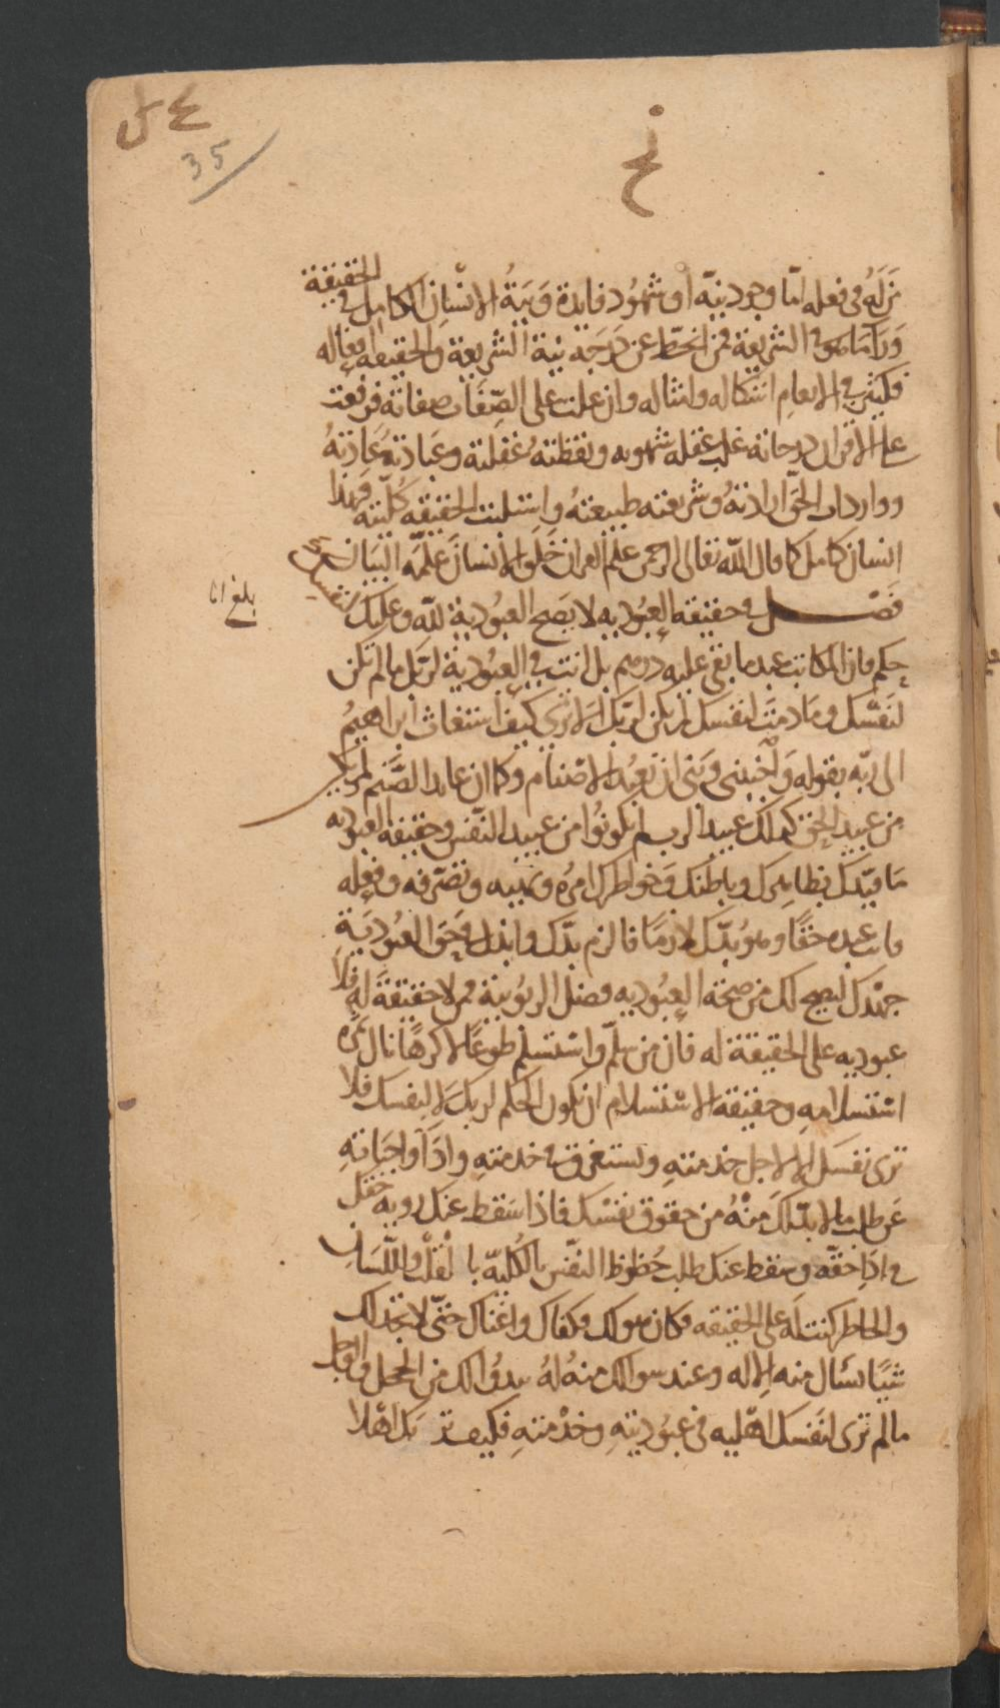 35
نزله في فعله اما وجود نية او شهود فايدة ونية الانسان الكامل في الحقيقة
ورآها هو في الشريعة فمن انحط عن درجة نية الشريعة والحقيقة افعاله
فكثير في الانعام اشكاله وامثاله وان علت على الصفات صفاته فرفعت
على الاقران درجاته غلب عقله شهوته ويقظته غفلته وعبادته عادته
وواردات الحق ارادته وشريعته طبيعته واشتملت الحقيقة كليته فهذا
انسان كامل كما قال الله تعالى الرحمن علم القران خلق الانسان علمه البيان
بلغ
فصل في حقيقة العبودية لا يصح العبودية لله وعليك لنفسك
حكم فان المكاتب عبد ما بقي عليه درهم بل انت في العبودية لربك ما لم تكن
لنفسك وما دمت لنفسك لم تكن لربك الا ترى كيف استغاث ابراهيم
الى ربه بقوله واجنبني وبني ان نعبد الاصنام وكما ان عابد الصنم لم يكن
من عبيد الحق كذلك عبيد الرب لم يكونوا من عبيد النفس وحقيقة العبودية
ما قيدك بظاهرك وباطنك وخواطرك امره ونهيه وتصرفه وفعله
فانت عبده حقا وهو بدك لازما فالزم بدك وابذل في حق العبودية
جهدك ليصح لك من صحة العبودية فضل الربوبية فمن لا حقيقة له فلا
عبودية على الحقيقة له فان من سلم واستسلم طوعا لا كرها نال ثمرة
استسلامه وحقيقة الاستسلام ان يكون الحكم لربك لا لنفسك فلا
ترى نفسك الا لاجل خدمته وتستغرق في خدمته واداء واجباته
عن طلب ما لا بد لك منه من حقوق نفسك فاذا سقط عنك رويه حقك
في اداء حقه وسقط عنك طلب حظوظ النفس بالكلية بالقلب واللسان
والخاطر كنت له على الحقيقة فكان هو لك فكفاك واغناك حتى لا تجد لك
شيا تسال منه الا له وعند سوالك منه له يبدو لك من الخجل والوجل
ما لم ترى لنفسك اهليه في عبوديته وخدمته فكيف تر بك اهلا